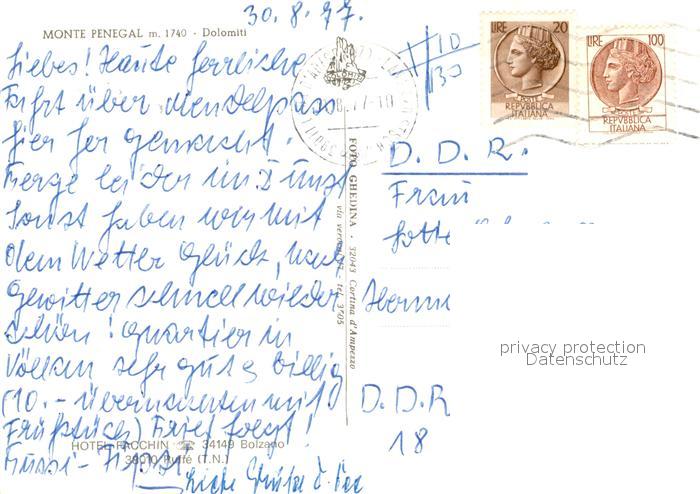 30.8.77.
MONTE PENEGAL m. 1740 - Dolomiti
Liebes! Heute herrliche
Fahrt über Mendelpass
hier her gemacht.
Berge leider im Dunst
Sonst haben wir mit
dem Wetter Glück, nach
Gewitter schnell wieder
schön! Quartier in
Völlan sehr gut & billig
(10.- übernachten mit
Frühstück) Brief folgt!
HOTEL FACCHIN ☎ 34149 Bolzano
38010 Ruffé (T.N.)
FOTO GHEDINA - 32043 Cortina d'Ampezzo
tel. 3705
LIRE 20
POSTE
REPVBBLICA
ITALIANA
LIRE 100
POSTE
REPVBBLICA
ITALIANA
D.D.R.
Frau
Lotte
Herm
D.D.R
18
privacy protection
Datenschutz